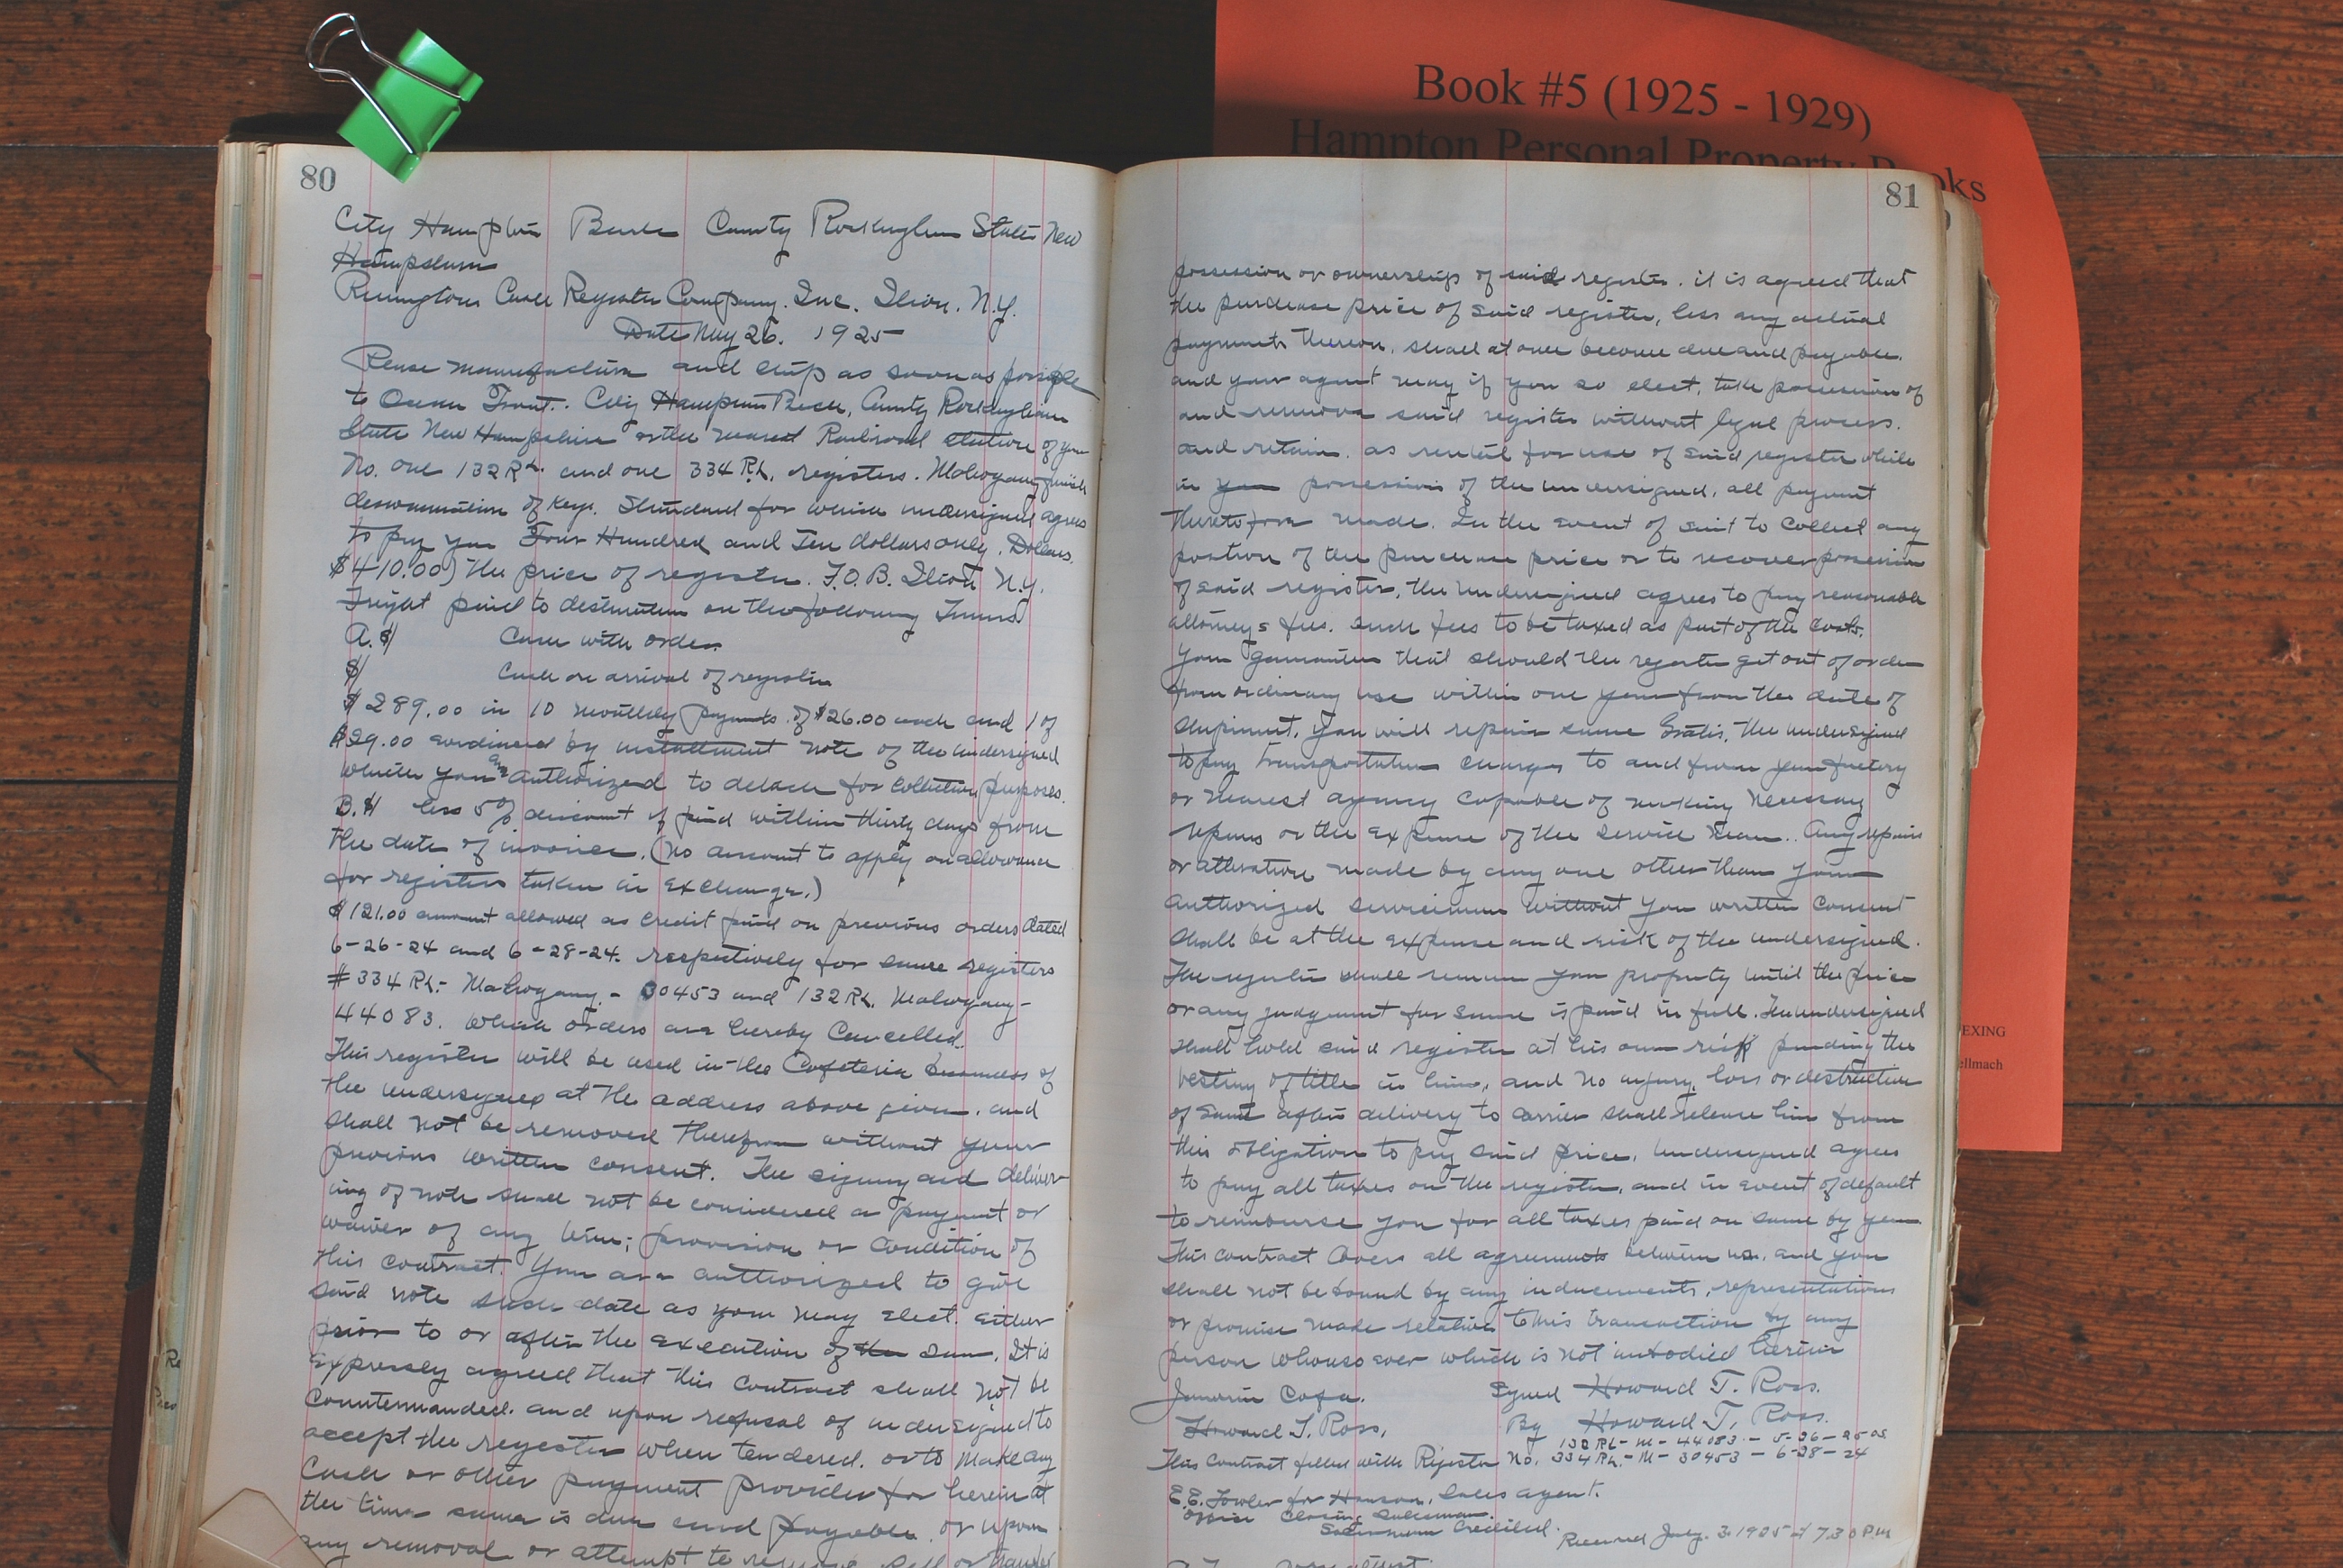 Book #5 (1925 - 1929)
Hampton Personal Property Books
EXING
ellmach
80
City Hampton Beach County Rockingham State New
Hampshire
Remington Cash Register Company. Inc. Ilion. N.Y.
Date May 26. 1925
Please manufacture and ship as soon as possible
to Ocean Front. City Hampton Beach, County Rockingham
State New Hampshire or the nearest Railroad station of your
No. one 132 RL. and one 334 RL. registers. Mahogany finish
denomination of keys. Standard for which undersigned agrees
to pay you Four Hundred and Ten dollars only. Dollars.
$410.00) the price of register. F.O.B. Ilion N.Y.
Freight paid to destination on the following Terms
A. $ Cash with order
$ Cash on arrival of register
$289.00 in 10 monthly payments of $26.00 each and 1 of
$29.00 evidenced by installment note of the undersigned
which you are authorized to detach for collection purposes.
B. $ less 5% discount if paid within thirty days from
the date of invoice. (No discount to apply on allowance
for registers taken in exchange.)
$121.00 amount allowed as credit paid on previous orders dated
6-26-24 and 6-28-24. respectively for same registers
#334 RL.- Mahogany.- 30453 and 132 RL. Mahogany-
44083. Which orders are hereby Cancelled.
This register will be used in the Cafeteria business of
the undersigned at the address above given. and
shall not be removed therefrom without your
previous written consent. The signing and deliver-
ing of note shall not be considered a payment or
waiver of any term; provision or condition of
this contract. You are authorized to give
said note such date as you may elect. either
prior to or after the execution of the same. It is
expressly agreed that this contract shall not be
Countermanded. and upon refusal of undersigned to
accept the register when tendered. or to make any
Cash or other payment provided for herein at
the time same is due and payable. or upon
any removal or attempt to remove, sell or transfer
81
possession or ownership of said register. it is agreed that
the purchase price of said register, less any actual
payments thereon. shall at once become due and payable.
and your agent may if you so elect, take possession of
and remove said register without legal process.
and retain. as rental for use of said register while
in possession of the undersigned. all payment
theretofore made. In the event of suit to collect any
portion of the purchase price or to recover possession
of said register, the undersigned agrees to pay reasonable
attorneys fees. such fees to be taxed as part of the costs.
You guarantee that should the register get out of order
from ordinary use within one year from the date of
shipment. you will repair same Gratis, the undersigned
to pay transportation charges to and from your factory
or nearest agency capable of making necessary
repairs or the expense of the service man. Any repairs
or alteration made by any one other than your
authorized serviceman without your written consent
shall be at the expense and risk of the undersigned.
The register shall remain your property until the price
or any judgement for same is paid in full. The undersigned
shall hold said register at his own risk pending the
vesting of title in him, and no injury, loss or destruction
of same after delivery to carrier shall release him from
this obligation to pay said price. Undersigned agrees
to pay all taxes on the register, and in event of default
to reimburse you for all taxes paid on same by you
This contract covers all agreements between us, and you
shall not be bound by any inducements, representations
or promise made relative to this transaction by any
person whomsoever which is not embodied herein
Cafe. Signed Howard T. Ross.
Howard T. Ross, By Howard T. Ross.
132 RL-M-44083 - 5-26-25
This contract filled with Register No. 334 RL.-M-30453 - 6-28-24
E.E. Fowler for Hanson, Sales agent.
Office Closing Salesman.
Salesman Credited.
Received July. 3. 1925 at 7.30 P.M